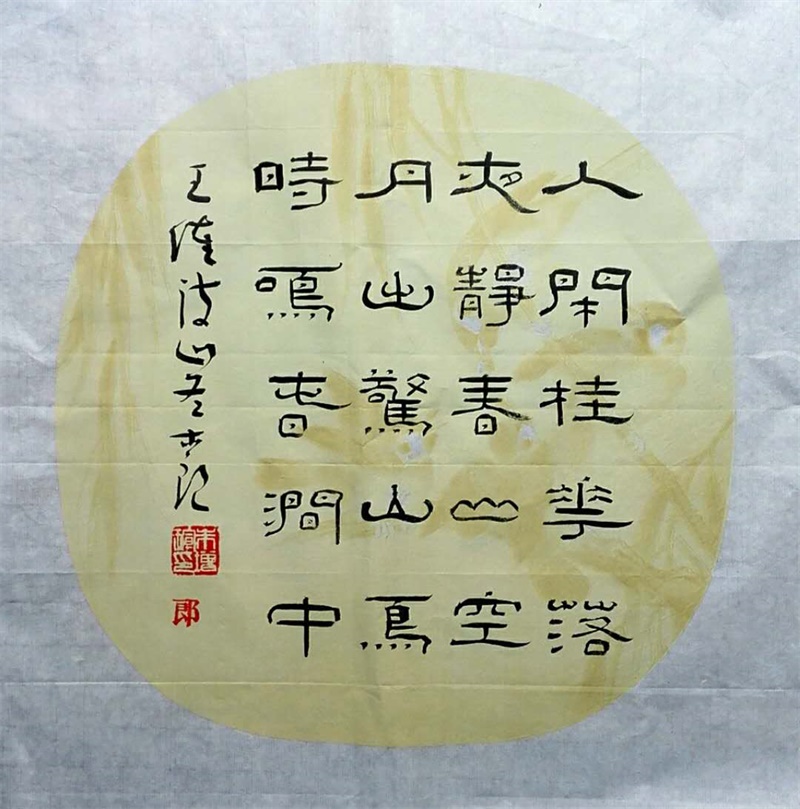 人閑桂華落
夜靜春山空
月出驚山鳥
時鳴春澗中
王維詩
郎